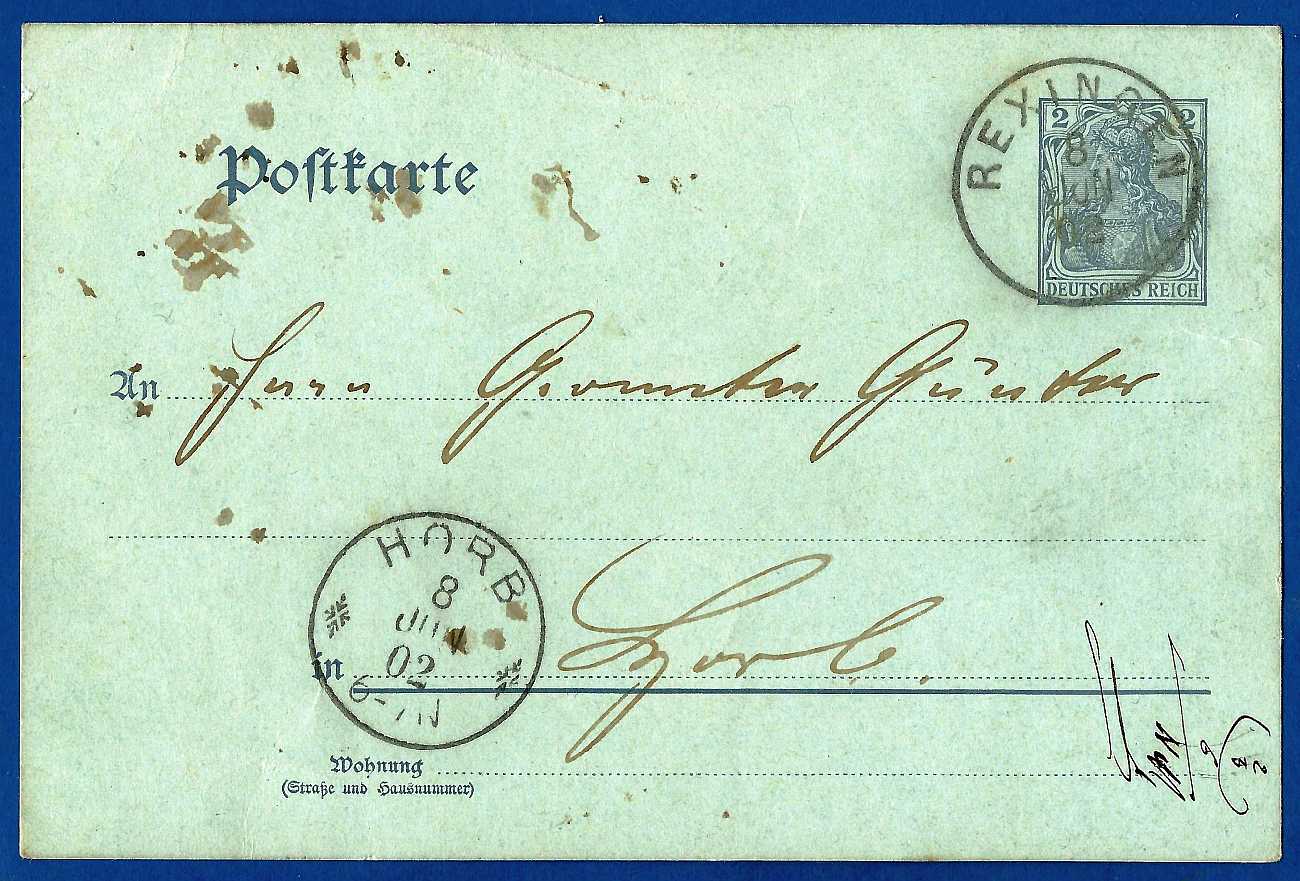 Postkarte
2 2
DEUTSCHES REICH
REXINGEN
8
JUN
02
An Herrn Geometer Günter
HORB
8
JUN
02
6-7N
in Horb.
Wohnung
(Straße und Hausnummer)